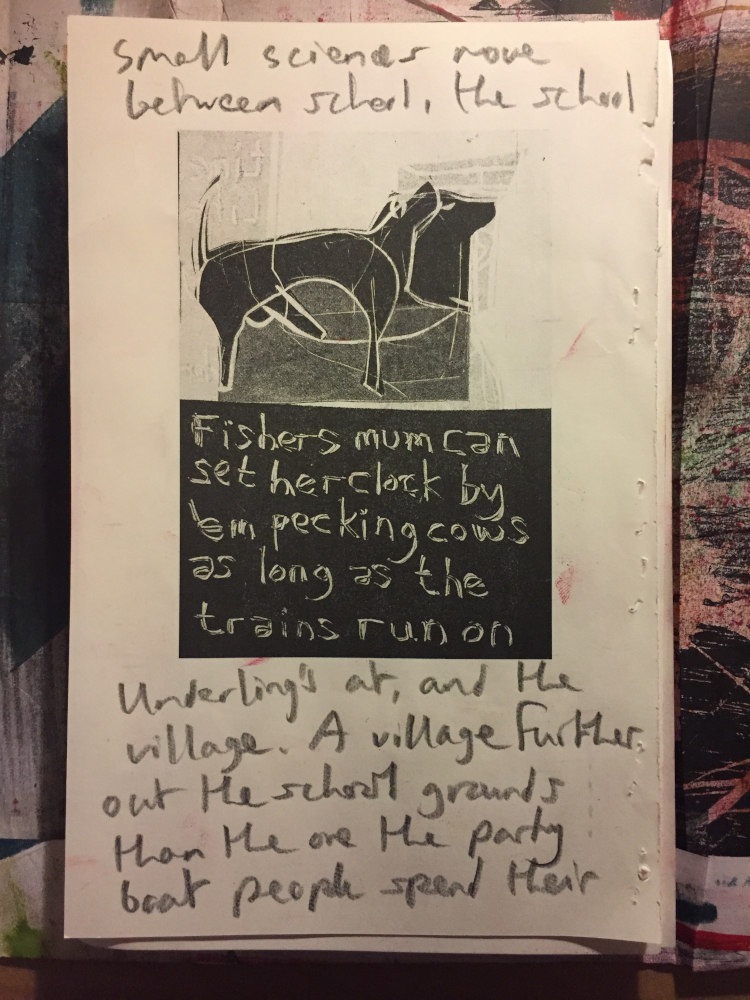 Small sciences move
between school, the school
Fishers mum can
set her clock by
'em pecking cows
as long as the
trains run on
Underling's at, and the
village. A village further
out the school grounds
than the one the party
boat people spend their